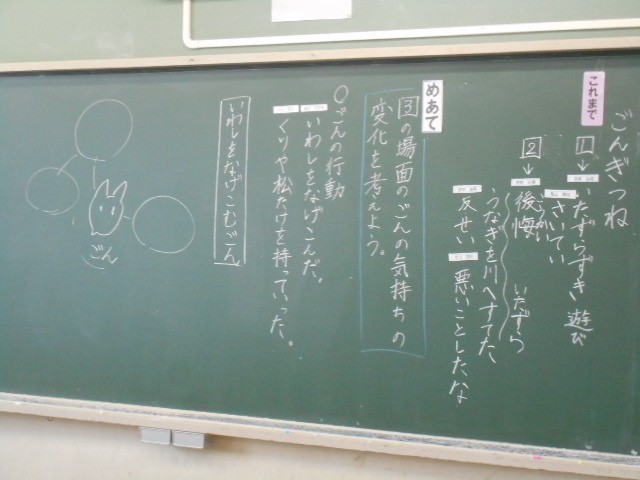 ごんぎつね
これまで
1→いたずらずき 遊び
さいてい
2→後悔 いたずら
こうかい
うなぎを川へすてた
反せい 悪いことしたな
めあて
3の場面のごんの気持ちの
変化を考えよう。
○ごんの行動
いわしをなげこんだ。
くりや松たけを持っていった。
いわしをなげこむごん
ごん